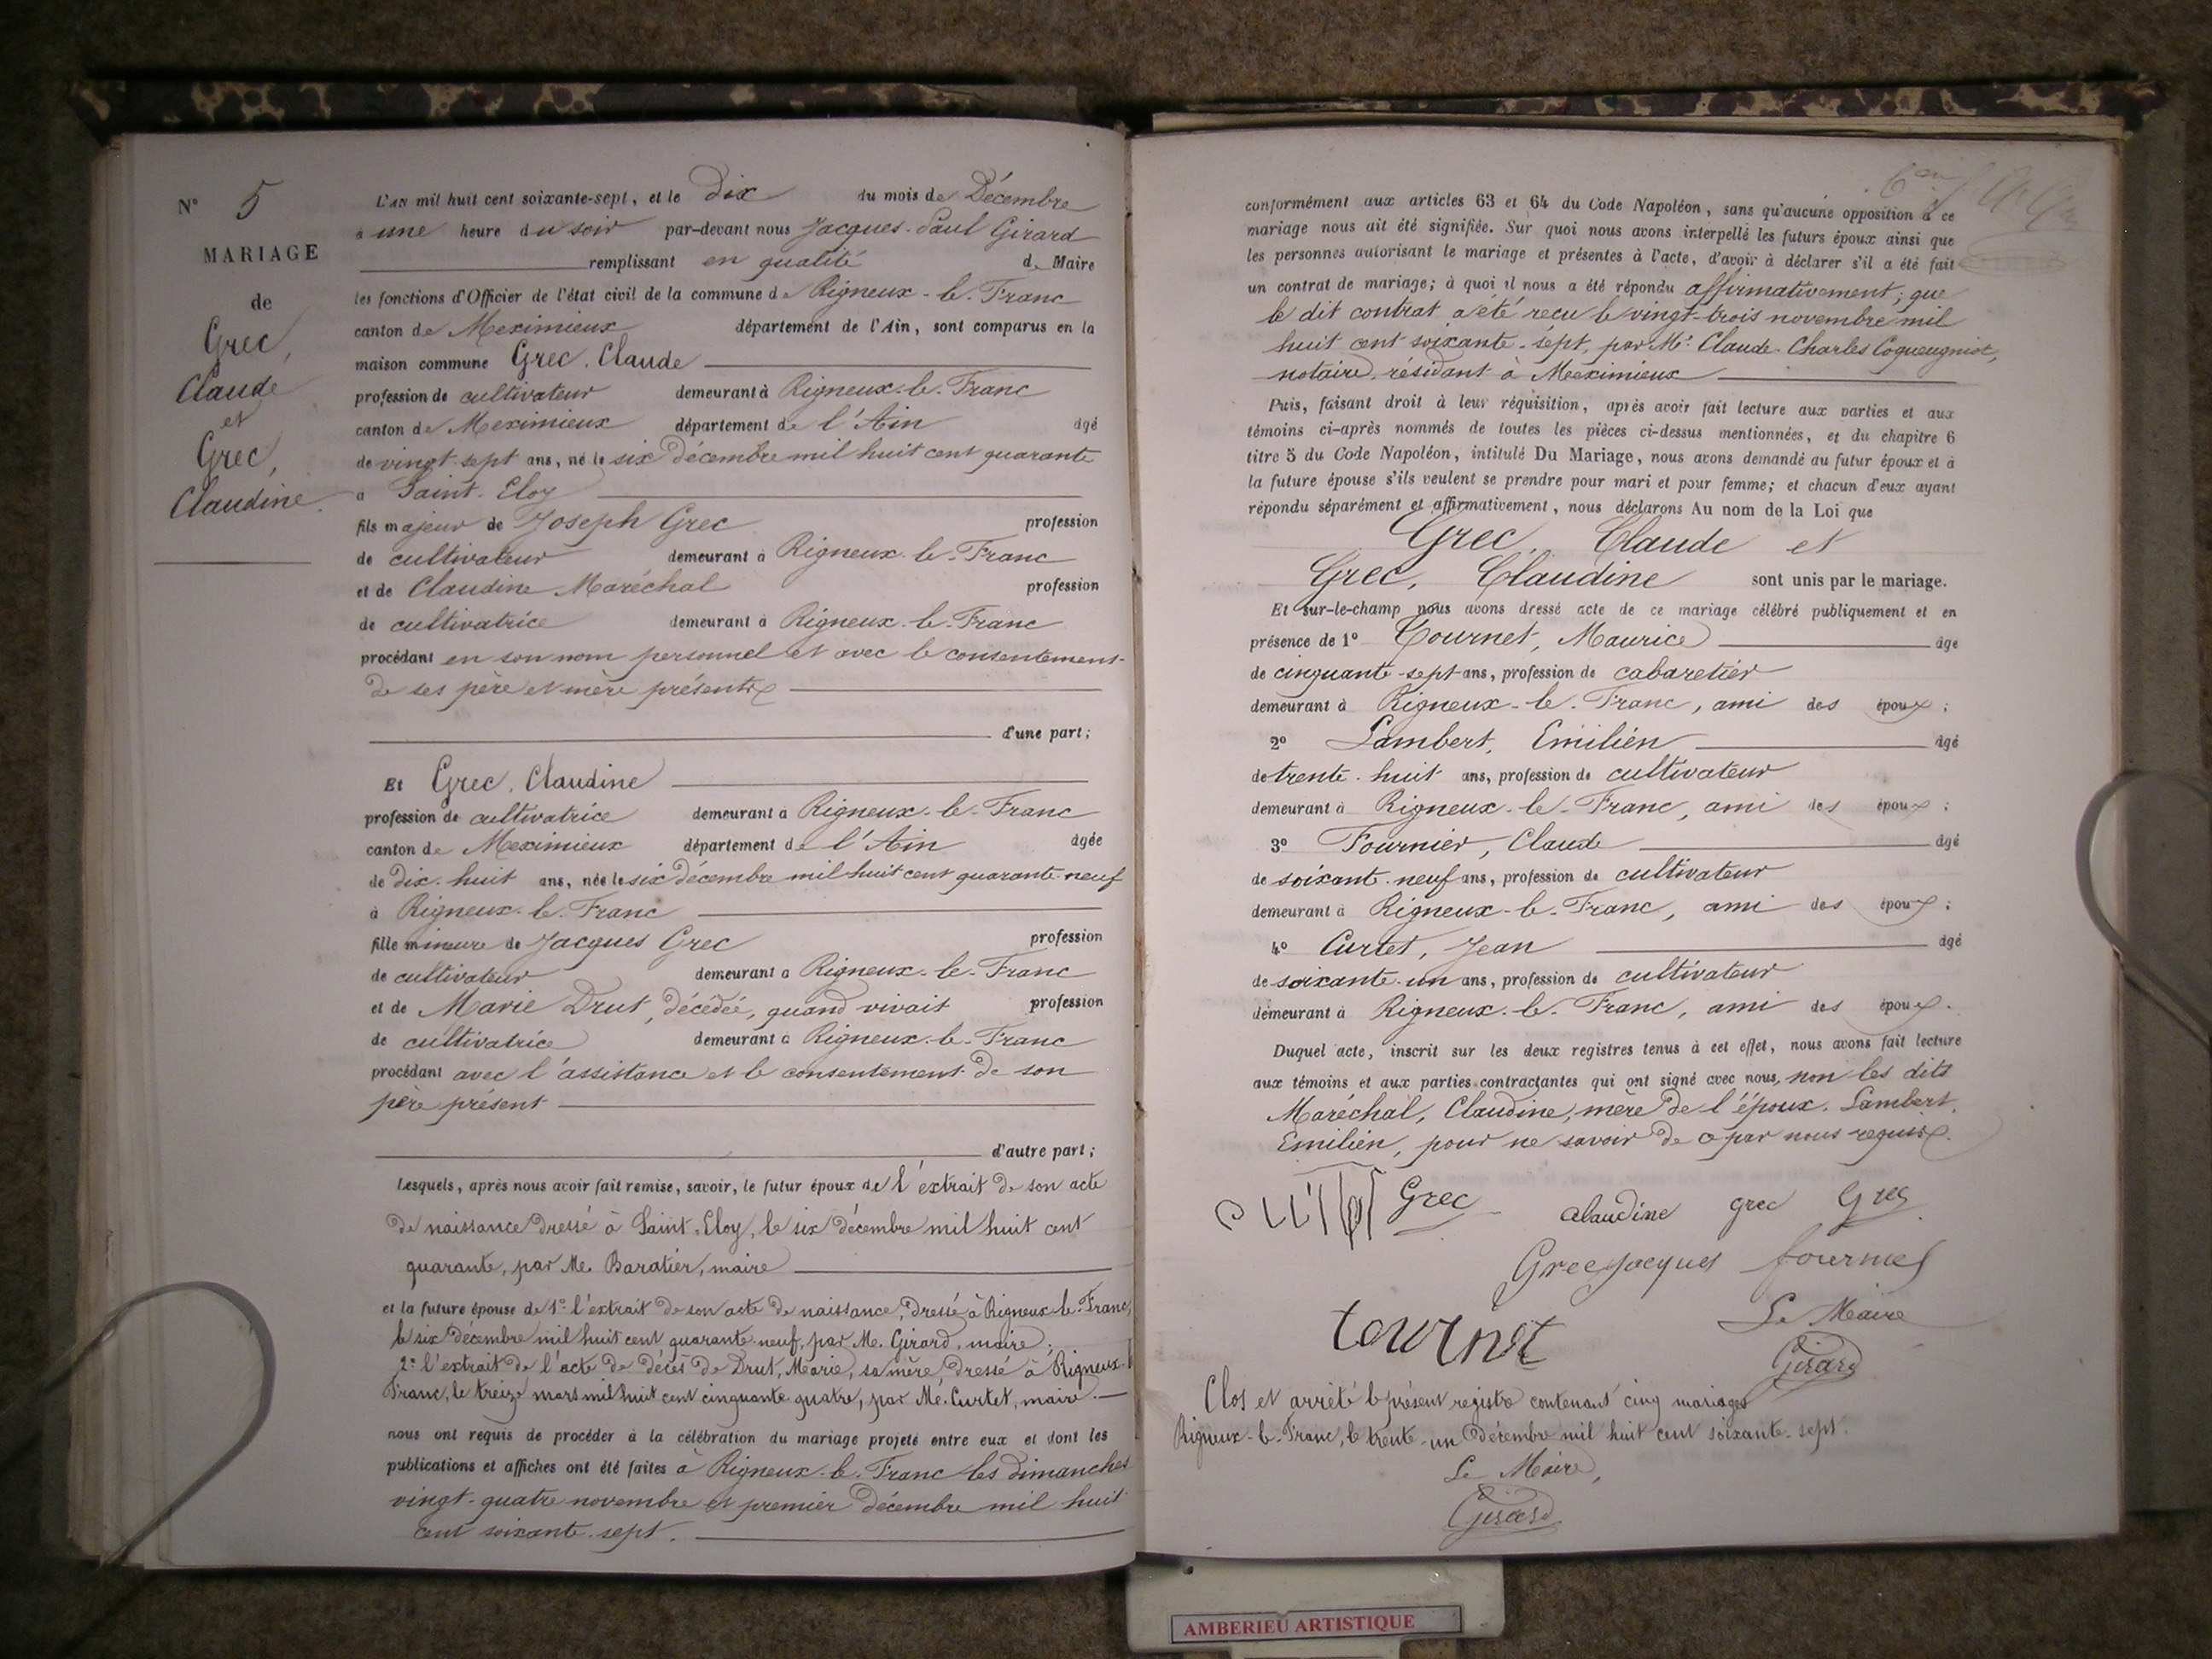 N° 5
MARIAGE
de
Grec,
Claude
et
Grec,
Claudine.
L'AN mil huit cent soixante-sept, et le Dix du mois de Décembre
à une heure du soir par-devant nous Jacques-Paul Girard
remplissant en qualité de Maire
les fonctions d'Officier de l'état civil de la commune de Rigneux-le-Franc
canton de Meximieux département de l'Ain, sont comparus en la
maison commune Grec, Claude
profession de cultivateur demeurant à Rigneux-le-Franc
canton de Meximieux département de l'Ain âgé
de vingt-sept ans, né le six Décembre mil huit cent quarante
à Saint-Eloy
fils majeur de Joseph Grec profession
de cultivateur demeurant à Rigneux-le-Franc
et de Claudine Maréchal profession
de cultivatrice demeurant à Rigneux-le-Franc
procédant en son nom personnel et avec le consentement
de ses père et mère présents
d'une part;
Et Grec, Claudine
profession de cultivatrice demeurant à Rigneux-le-Franc
canton de Meximieux département de l'Ain âgée
de dix-huit ans, née le six décembre mil huit cent quarante-neuf
à Rigneux-le-Franc
fille mineure de Jacques Grec profession
de cultivateur demeurant à Rigneux-le-Franc
et de Marie Drut, décédée, quand vivait profession
de cultivatrice demeurant à Rigneux-le-Franc
procédant avec l'assistance et le consentement de son
père présent
d'autre part;
Lesquels, après nous avoir fait remise, savoir, le futur époux de l'extrait de son acte
de naissance dressé à Saint-Eloy, le six décembre mil huit cent
quarante, par Me. Baratier, maire
et la future épouse de 1° l'extrait de son acte de naissance, dressé à Rigneux-le-Franc,
le six décembre mil huit cent quarante-neuf, par Me. Girard, maire;
2° l'extrait de l'acte de décès de Drut, Marie, sa mère, dressé à Rigneux-le
Franc, le treize mars mil huit cent cinquante quatre, par Me. Curtet, maire.
nous ont requis de procéder à la célébration du mariage projeté entre eux et dont les
publications et affiches ont été faites à Rigneux-le-Franc les dimanches
vingt-quatre novembre et premier décembre mil huit
cent soixante-sept.
conformément aux articles 63 et 64 du Code Napoléon, sans qu'aucune opposition à ce
mariage nous ait été signifiée. Sur quoi nous avons interpellé les futurs époux ainsi que
les personnes autorisant le mariage et présentes à l'acte, d'avoir à déclarer s'il a été fait
un contrat de mariage; à quoi il nous a été répondu affirmativement; que
le dit contrat a été reçu le vingt-trois novembre mil
huit cent soixante-sept, par Me. Claude-Charles Coqueugniot,
notaire, résidant à Meximieux
Puis, faisant droit à leur réquisition, après avoir fait lecture aux parties et aux
témoins ci-après nommés de toutes les pièces ci-dessus mentionnées, et du chapitre 6
titre 5 du Code Napoléon, intitulé Du Mariage, nous avons demandé au futur époux et à
la future épouse s'ils veulent se prendre pour mari et pour femme; et chacun d'eux ayant
répondu séparément et affirmativement, nous déclarons Au nom de la Loi que
Grec, Claude et
Grec, Claudine sont unis par le mariage.
Et sur-le-champ nous avons dressé acte de ce mariage célébré publiquement et en
présence de 1° Tournet, Maurice âgé
de cinquante-sept ans, profession de cabaretier
demeurant à Rigneux-le-Franc, ami des époux;
2° Lambert, Emilien âgé
de trente-huit ans, profession de cultivateur
demeurant à Rigneux-le-Franc, ami des époux;
3° Fournier, Claude âgé
de soixante-neuf ans, profession de cultivateur
demeurant à Rigneux-le-Franc, ami des époux;
4° Curtet, Jean âgé
de soixante-un ans, profession de cultivateur
demeurant à Rigneux-le-Franc, ami des époux.
Duquel acte, inscrit sur les deux registres tenus à cet effet, nous avons fait lecture
aux témoins et aux parties contractantes qui ont signé avec nous, non les dits
Maréchal, Claudine, mère de l'époux, Lambert,
Emilien, pour ne savoir de ce par nous requis.
Grec Claudine grec Grec
Grec Jacques
tournet
Le Maire
Girard
Clos et arrêté le présent registre contenant cinq mariages
Rigneux-le-Franc, le trente-un Décembre mil huit cent soixante-sept.
Le Maire,
Girard
AMBERIEU ARTISTIQUE